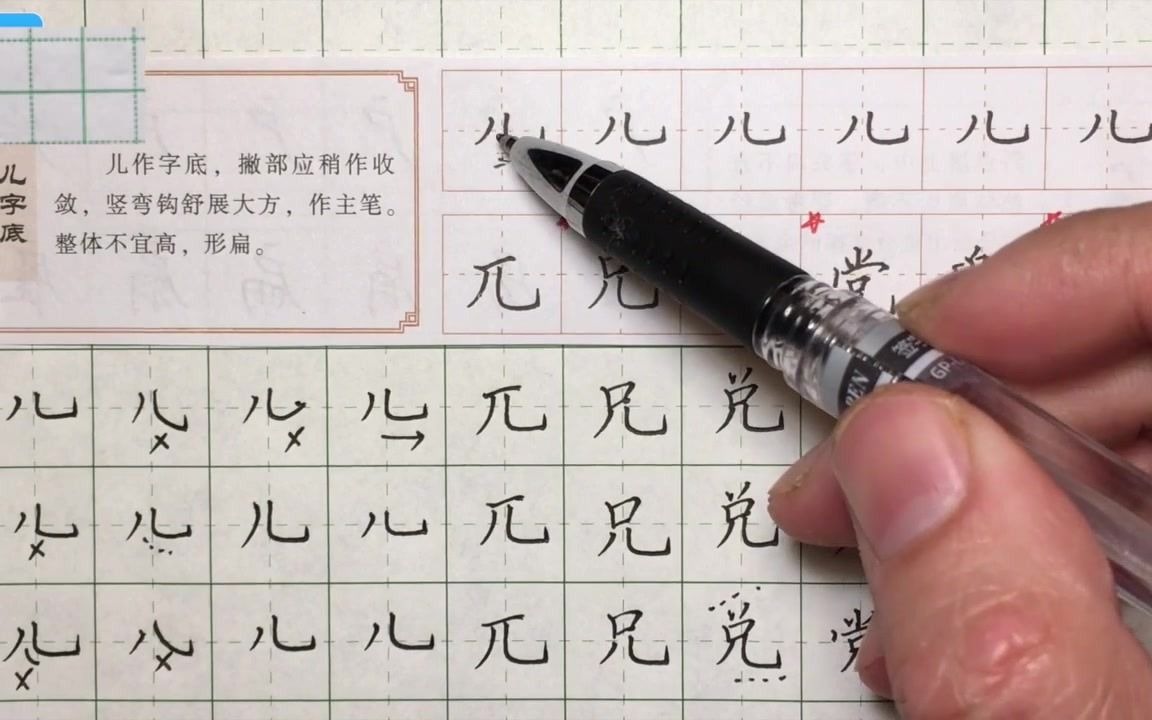 儿字底
儿作字底，撇部应稍作收
敛，竖弯钩舒展大方，作主笔。
整体不宜高，形扁。
儿 儿 儿 儿 儿 儿
兀 兄 堂
儿 儿 × 儿 × 儿 → 兀 兄 兑
儿 × 儿 儿 儿 兀 兄 兑
儿 × 儿 × 儿 儿 兀 兄 兑
PEN